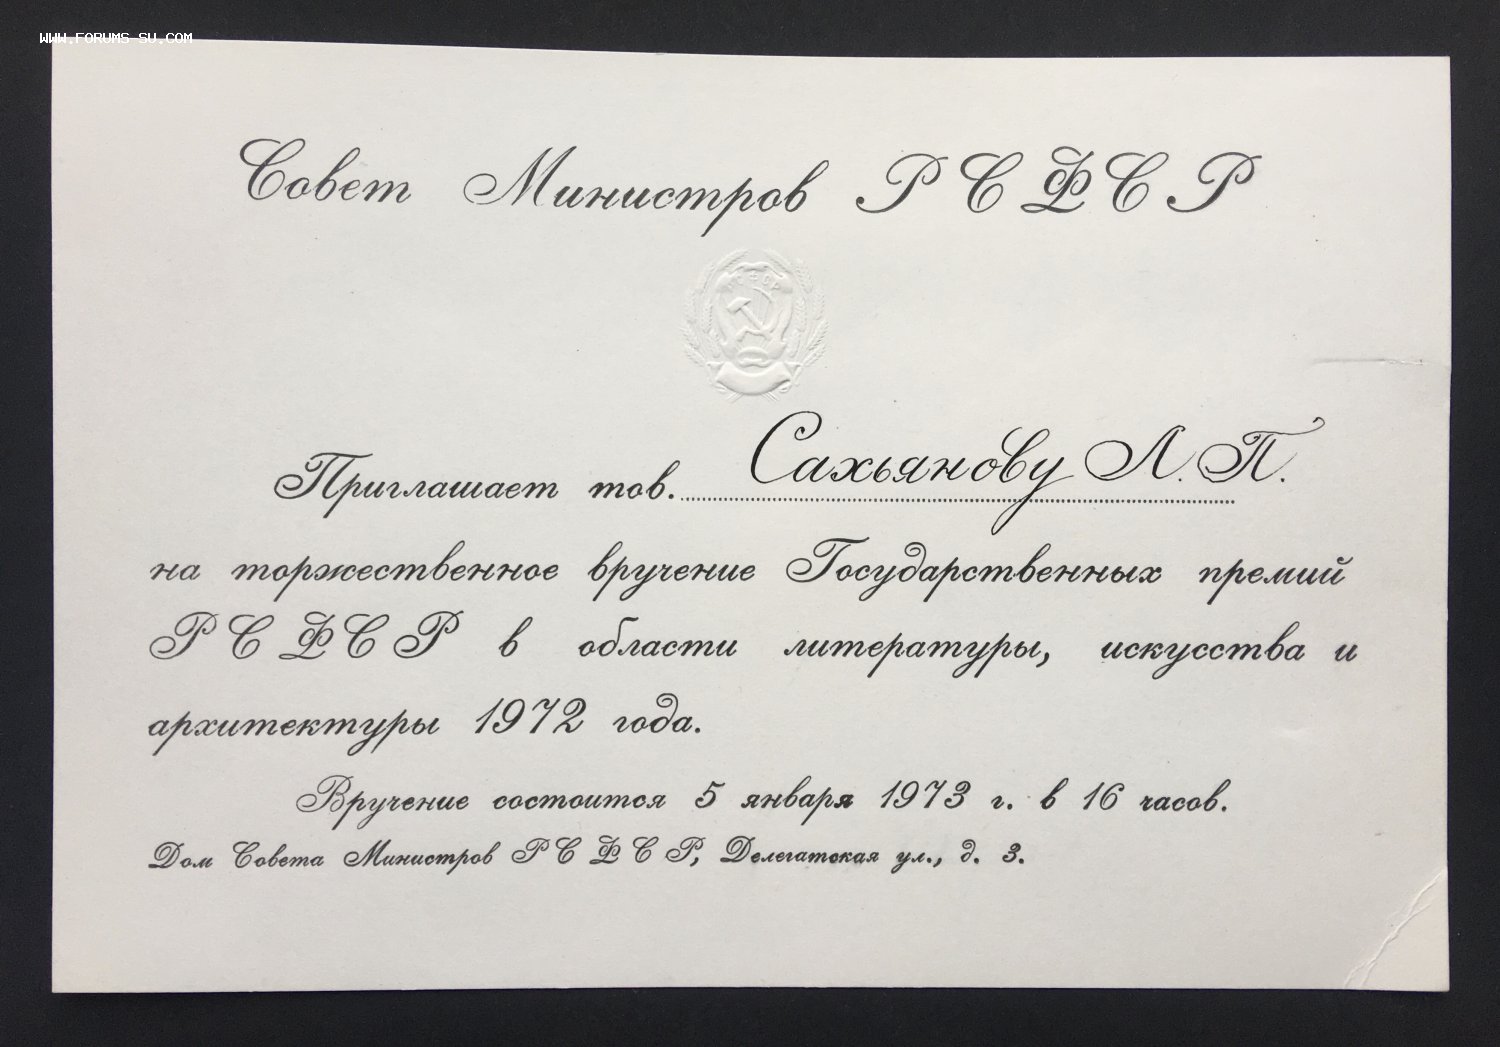 WWW.FORUMS-SU.COM
Совет Министров РСФСР
РСФСР
Приглашает тов. Сахьянову Л. П.
на торжественное вручение Государственных премий
РСФСР в области литературы, искусства и
архитектуры 1972 года.
Вручение состоится 5 января 1973 г. в 16 часов.
Дом Совета Министров РСФСР, Делегатская ул., д. 3.